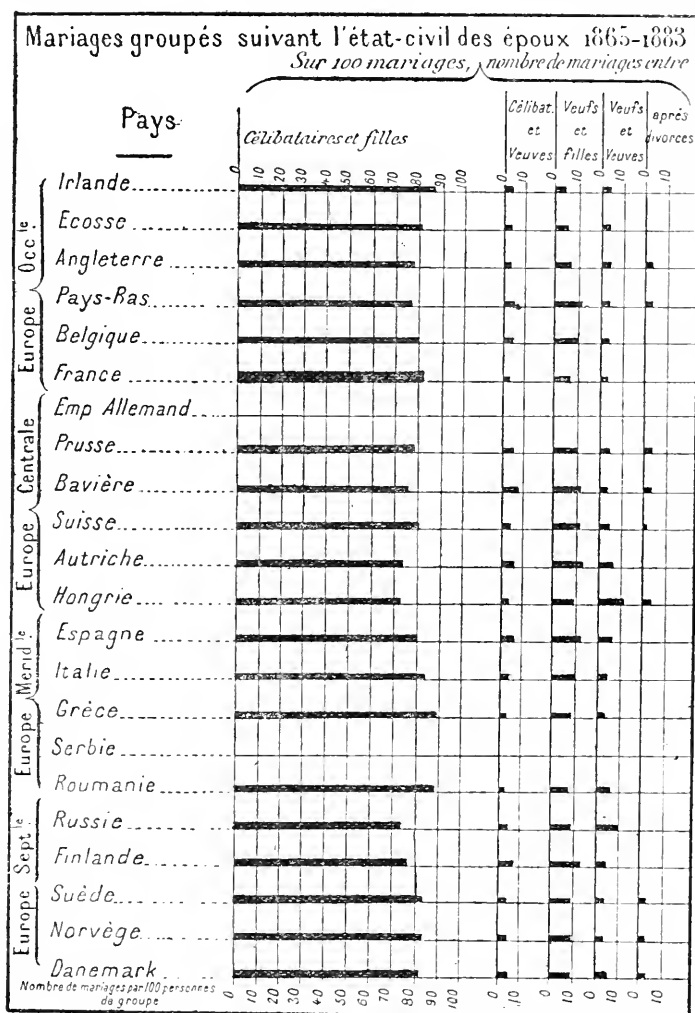 Mariages groupés suivant l'état-civil des époux 1865-1883
Sur 100 mariages, nombre de mariages entre
Pays
Célibataires et filles
Célibat. et Veuves
Veufs et filles
Veufs et Veuves
après divorces
0 10 20 30 40 50 60 70 80 90 100 0 10 0 10 0 10 0 10
Europe Occle.
Irlande
Ecosse
Angleterre
Pays-Ras
Belgique
France
Europe Centrale
Emp Allemand
Prusse
Bavière
Suisse
Autriche
Hongrie
Europe Merid le.
Espagne
Italie
Grèce
Serbie
Roumanie
Europe Sept le.
Russie
Finlande
Suède
Norvège
Danemark
Nombre de mariages par 100 personnes
de groupe
0 10 20 30 40 50 60 70 80 90 100 0 10 0 10 0 10 0 10